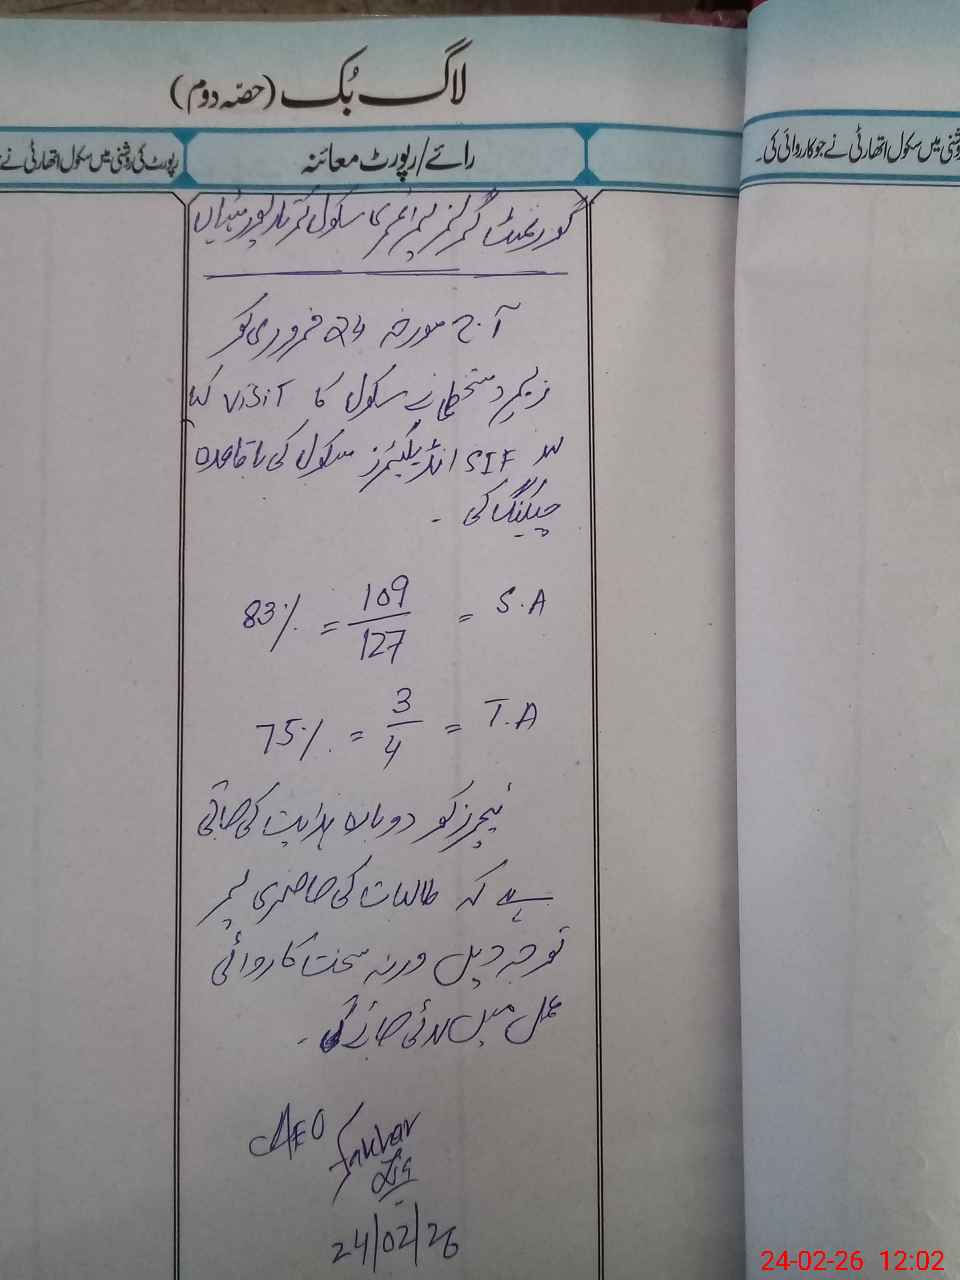 لاگ بُک (حصّہ دوم)
رائے/رپورٹ معائنہ
رپورٹ کی روشنی میں سکول اتھارٹی نے
روشنی میں سکول اتھارٹی نے جو کاروائی کی۔
گورنمنٹ گرلز پرائمری سکول
آج مورخہ 24 فروری کو
زیر دستخطی نے سکول کا Visit کیا
SIF انڈیکیٹرز سکول کی باقاعدہ
چیکنگ کی ۔
83% = 109/127 = S.A
75% = 3/4 = T.A
ٹیچرز کو دوبارہ ہدایت کی جاتی
ہے کہ طالبات کی حاضری پر
توجہ دیں ورنہ سخت کاروائی
عمل میں لائی جائے گی ۔
AEO
Fakhar
24/02/26
24-02-26 12:02